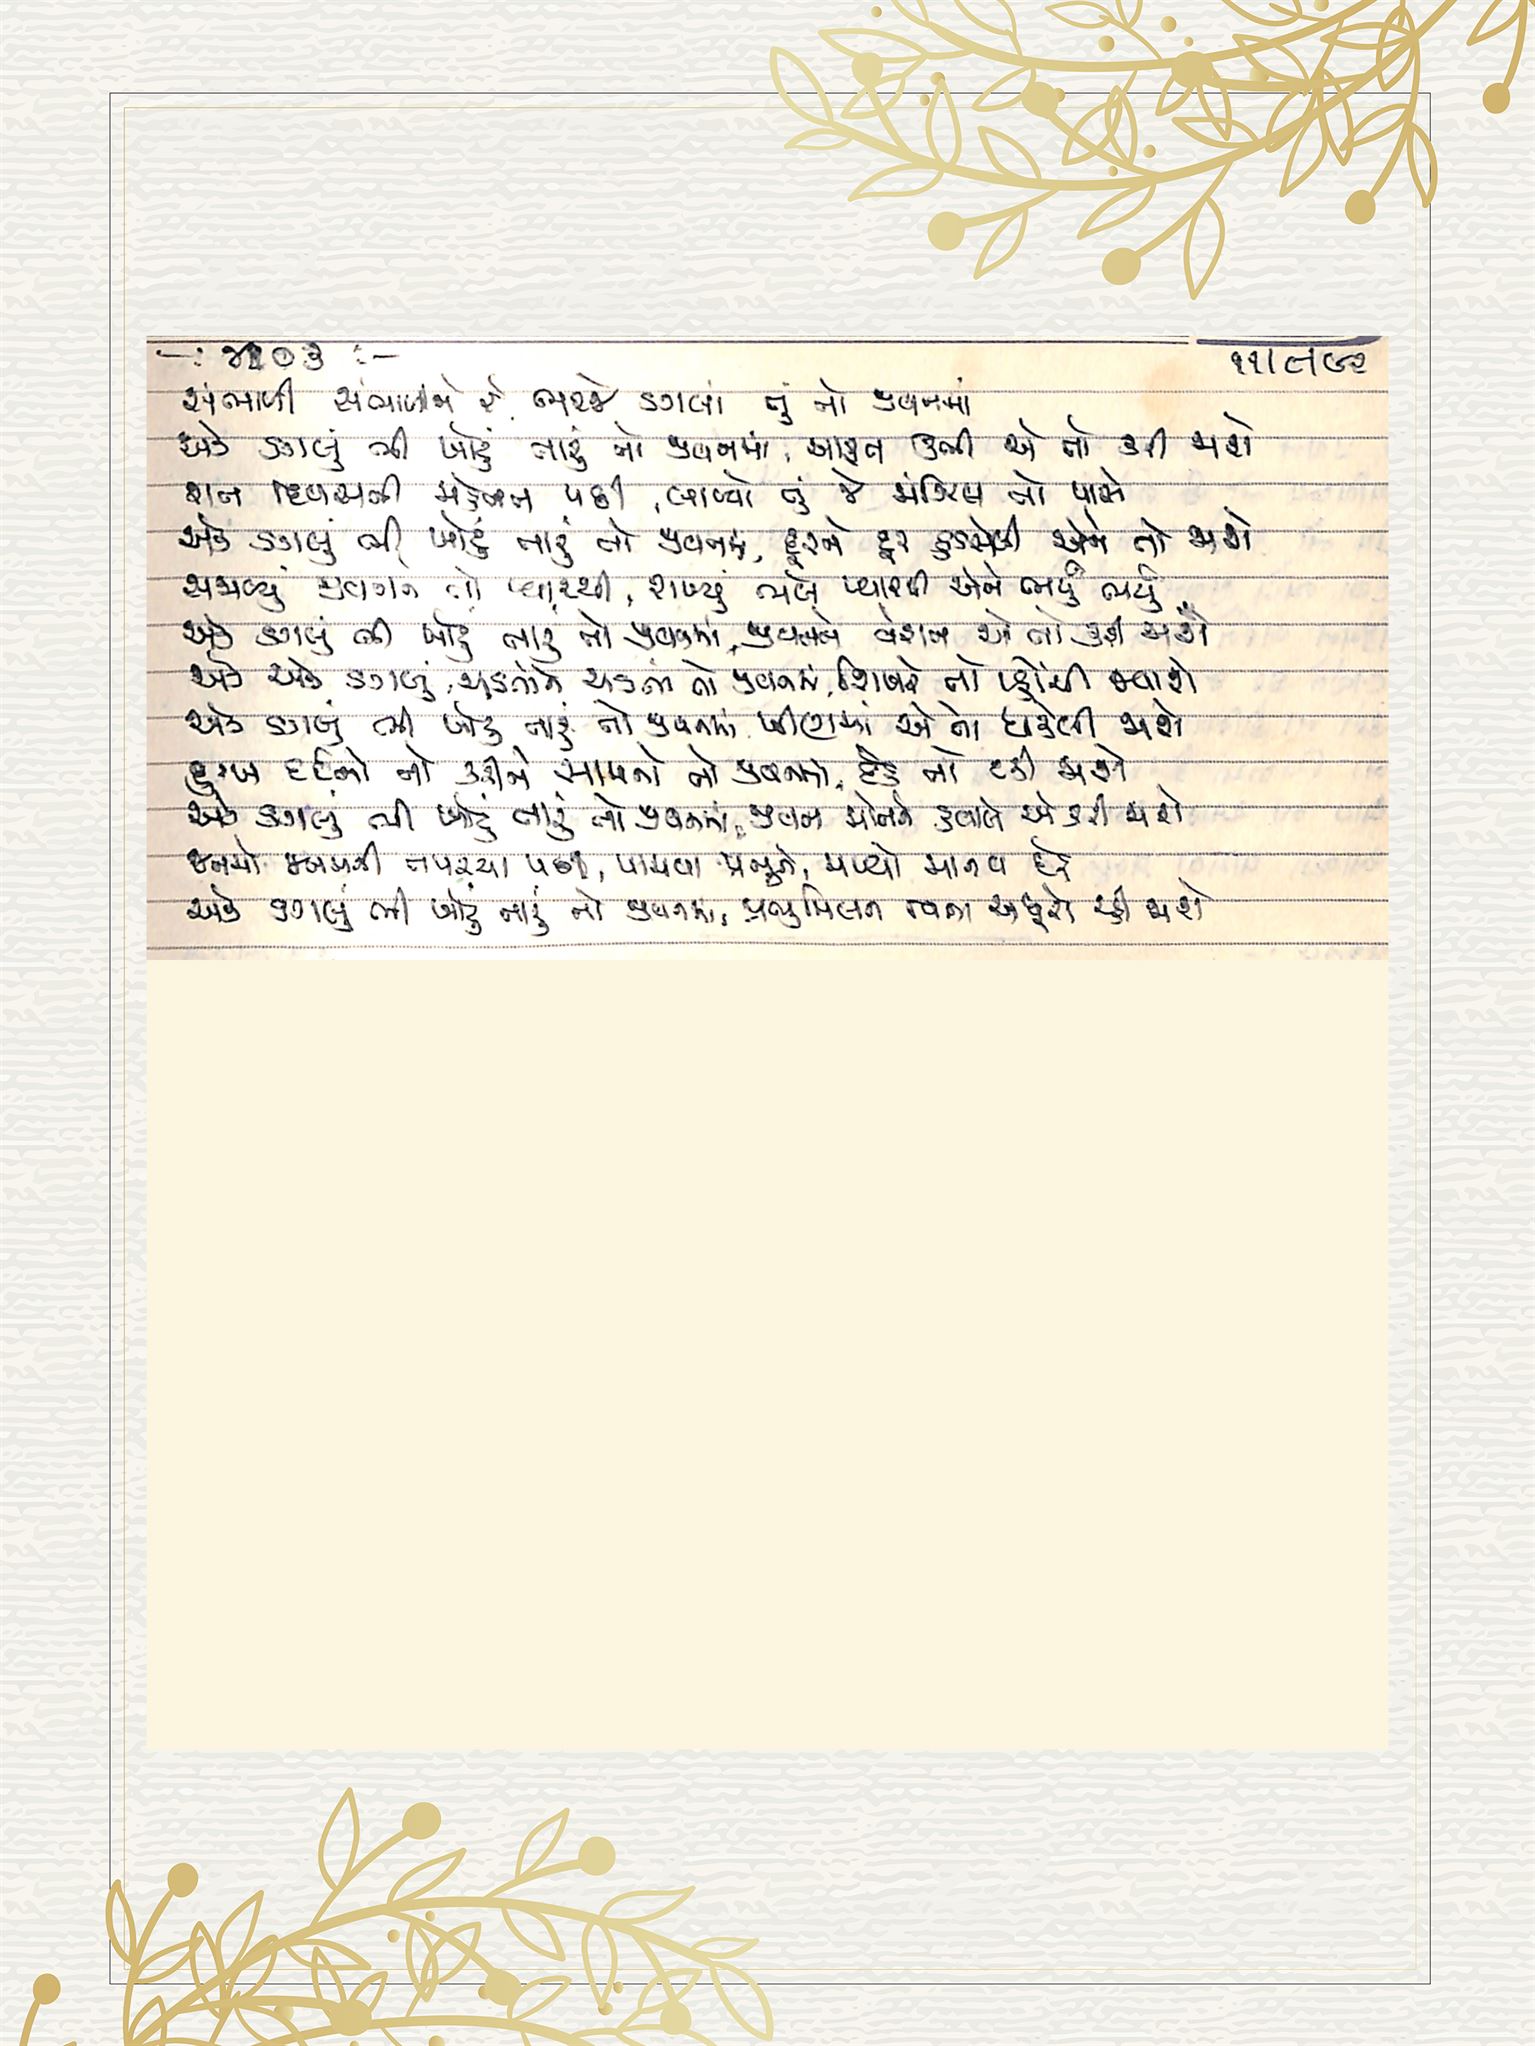 -: ૪૨૦૩ :-
૧૧/૯/૯૨
સંભાળી સંભાળીને રે ભરજે ડગલાં તું તો જીવનમાં
એક ડગલું ભી ખોટું તારું તો જીવનમાં, આફત ઊભી એ તો કરી જાશે
રાત દિવસની મહેનત પછી, લાવ્યો તું જે મંઝિલ તો પાસે
એક ડગલું ભી ખોટું તારું તો જીવનમાં, દૂરને દૂર હડસેલી એને તો જાશે
સમજ્યું જીવનને તો પ્યારથી, રાખ્યું ભલે પ્યારથી એને ભર્યું ભર્યું
એક ડગલું ભી ખોટું તારું તો જીવનમાં, જીવનને વેરાન એ તો કરી જાશે
એક એક ડગલું, ચડતાંને ચડતાં તો જીવનમાં, શિખરે તો પ્હોંચી જવાશે
એક ડગલું ભી ખોટું તારું તો જીવનમાં ખીણમાં એ તો ધકેલી જાશે
દુઃખ દર્દનો તો કરીને સામનો તો જીવનમાં, દેહ તો ટકી જાશે
એક ડગલું ભી ખોટું તારું તો જીવનમાં, જીવન મોતને હવાલે એ કરી જાશે
જનમો જનમની તપશ્ચર્યા પછી, પામવા પ્રભુને, મળ્યો માનવ દેહ
એક ડગલું ભી ખોટું તારું તો જીવનમાં, પ્રભુમિલન વિના અધૂરો રહી જાશે